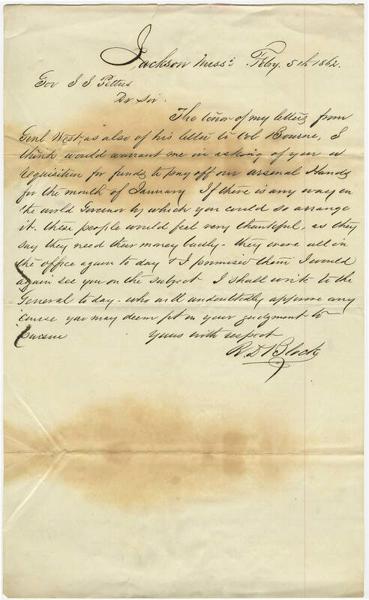 Jackson Miss. Feby. 5th 1862.
Gov J J Pettus
Dr Sir
The tenor of my letters from
Genl West, as also of his letter to Col Bourne, I
think would warrant me in asking of you a
requisition for funds to pay off our arsenal Hands
for the month of January If there is any way on
the world Governor by which you could so arrange
it. these people would feel very thankful, as they
say they need their money badly - they were all in
the office again to day & I promised them I would
again see you on the subject I shall write to the
General to day - who will undoubtedly approve any
course you may deem fit in your judgment to
pursue
Yours with respect
R. D Black